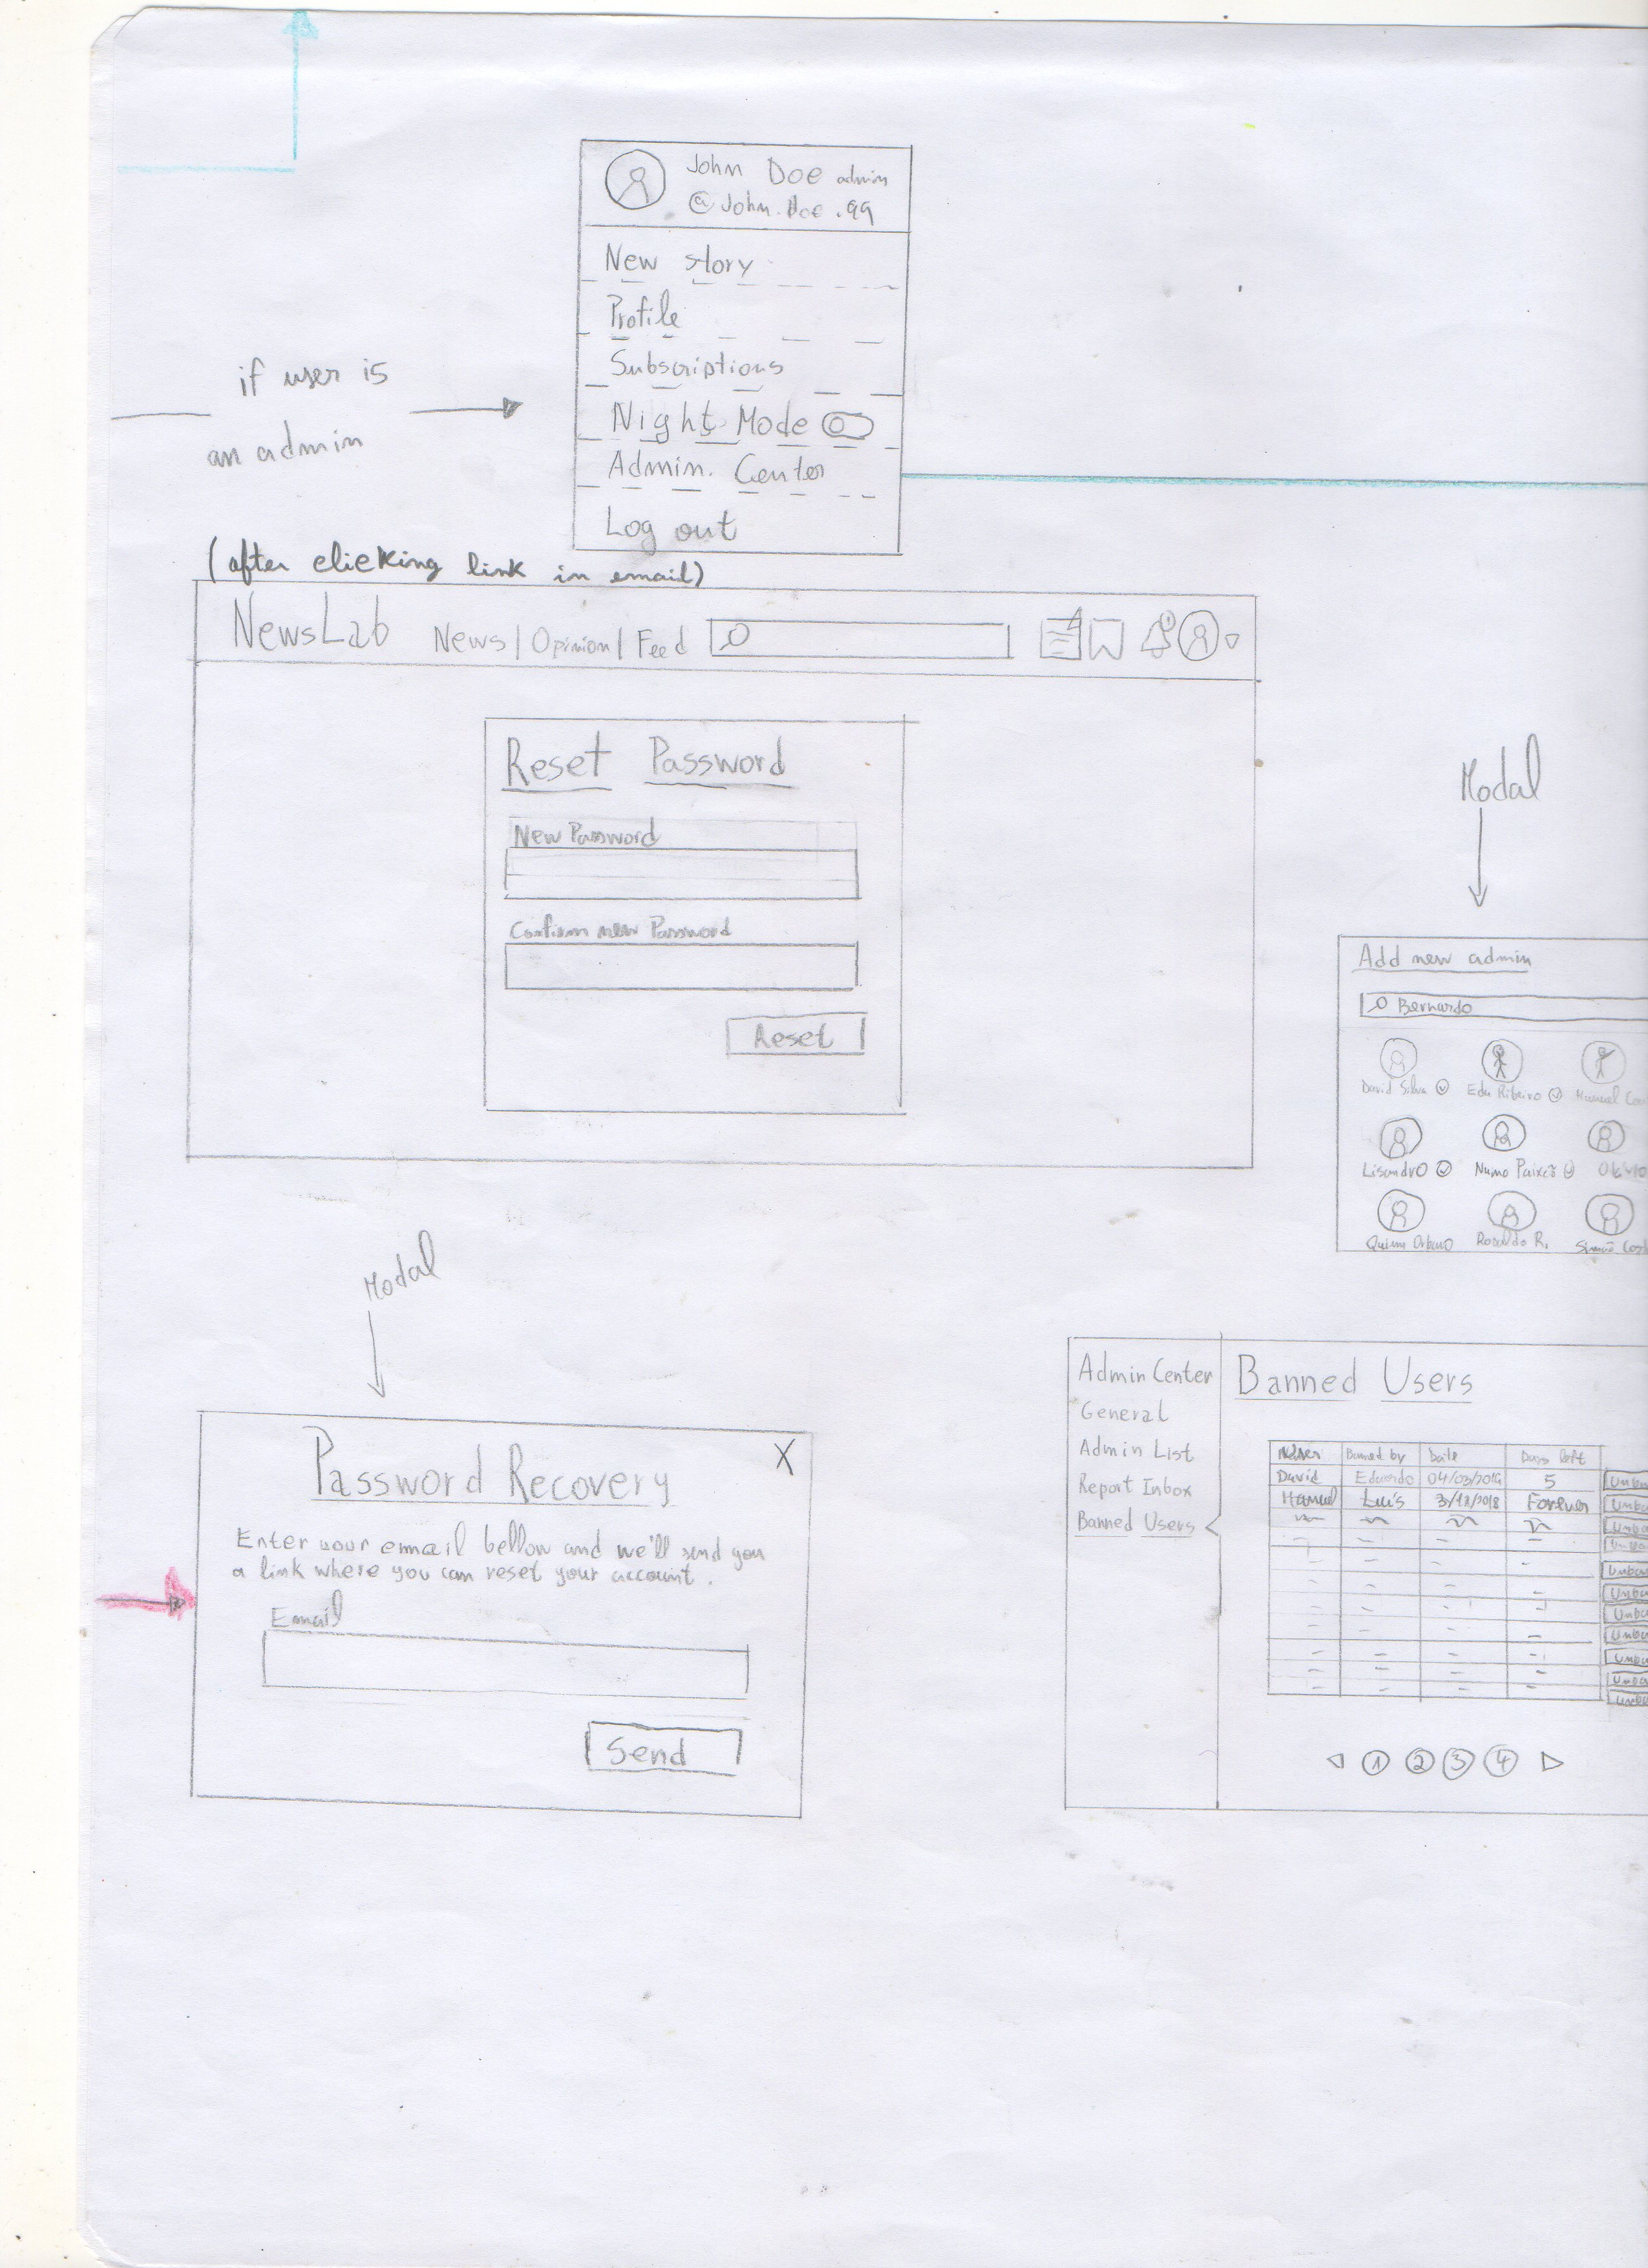 John Doe admin
@John.Doe.99
New story
Profile
Subscriptions
Night Mode
Admin. Center
Log out
if user is
an admin
(after clicking link in email)
NewsLab News | Opinion | Feed
Reset Password
New Password
Confirm new Password
Reset
Modal
Add new admin
Bernardo
David Silva Edu Ribeiro Manuel
Lisandro Nuno Paixão
Quim Ronaldo R. Simão
Modal
Password Recovery X
Enter your email bellow and we'll send you
a link where you can reset your account.
Email
Send
Admin Center
General
Admin List
Report Inbox
Banned Users
Banned Users
Banned by Date Days left
David Eduardo 5
Manuel Luís 31/12/2018 Forever
1 2 3 4